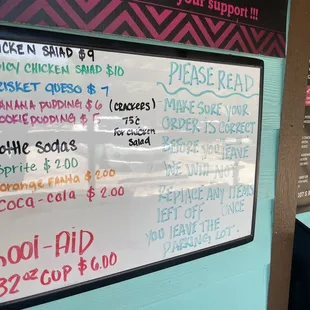 your support !!!
CKEN SALAD $9
ICY CHICKEN SALAD $10
RISKET QUESO $7
ANANA PUDDING $6 (CRACKERS)
OOKIE PUDDING $5
75¢
FOR CHICKEN
SALAD
OTTLE SODAS
SPRITE $2.00
ORANGE FANTA $2.00
COCA-COLA $2.00
OOl-AiD
32oz CUP $6.00
PLEASE READ
MAKE SURE YOUR
ORDER IS CORRECT
BEFORE YOU LEAVE
WE WILL NOT
REPLACE ANY ITEMS
LEFT OFF ONCE
YOU LEAVE THE
PARKING LOT.